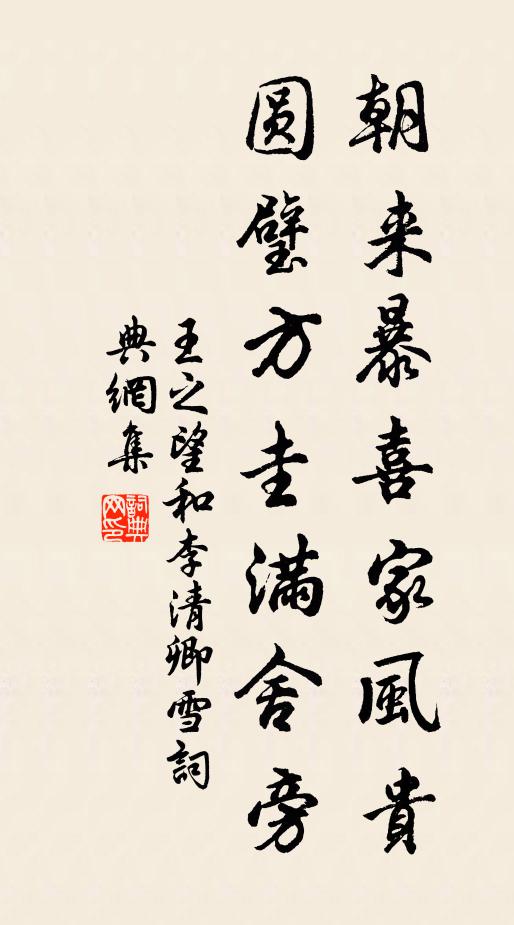 朝来暴喜家風貴
圆璧方圭满舍旁
王之望和李清卿雪詞
典網集
詞典网印